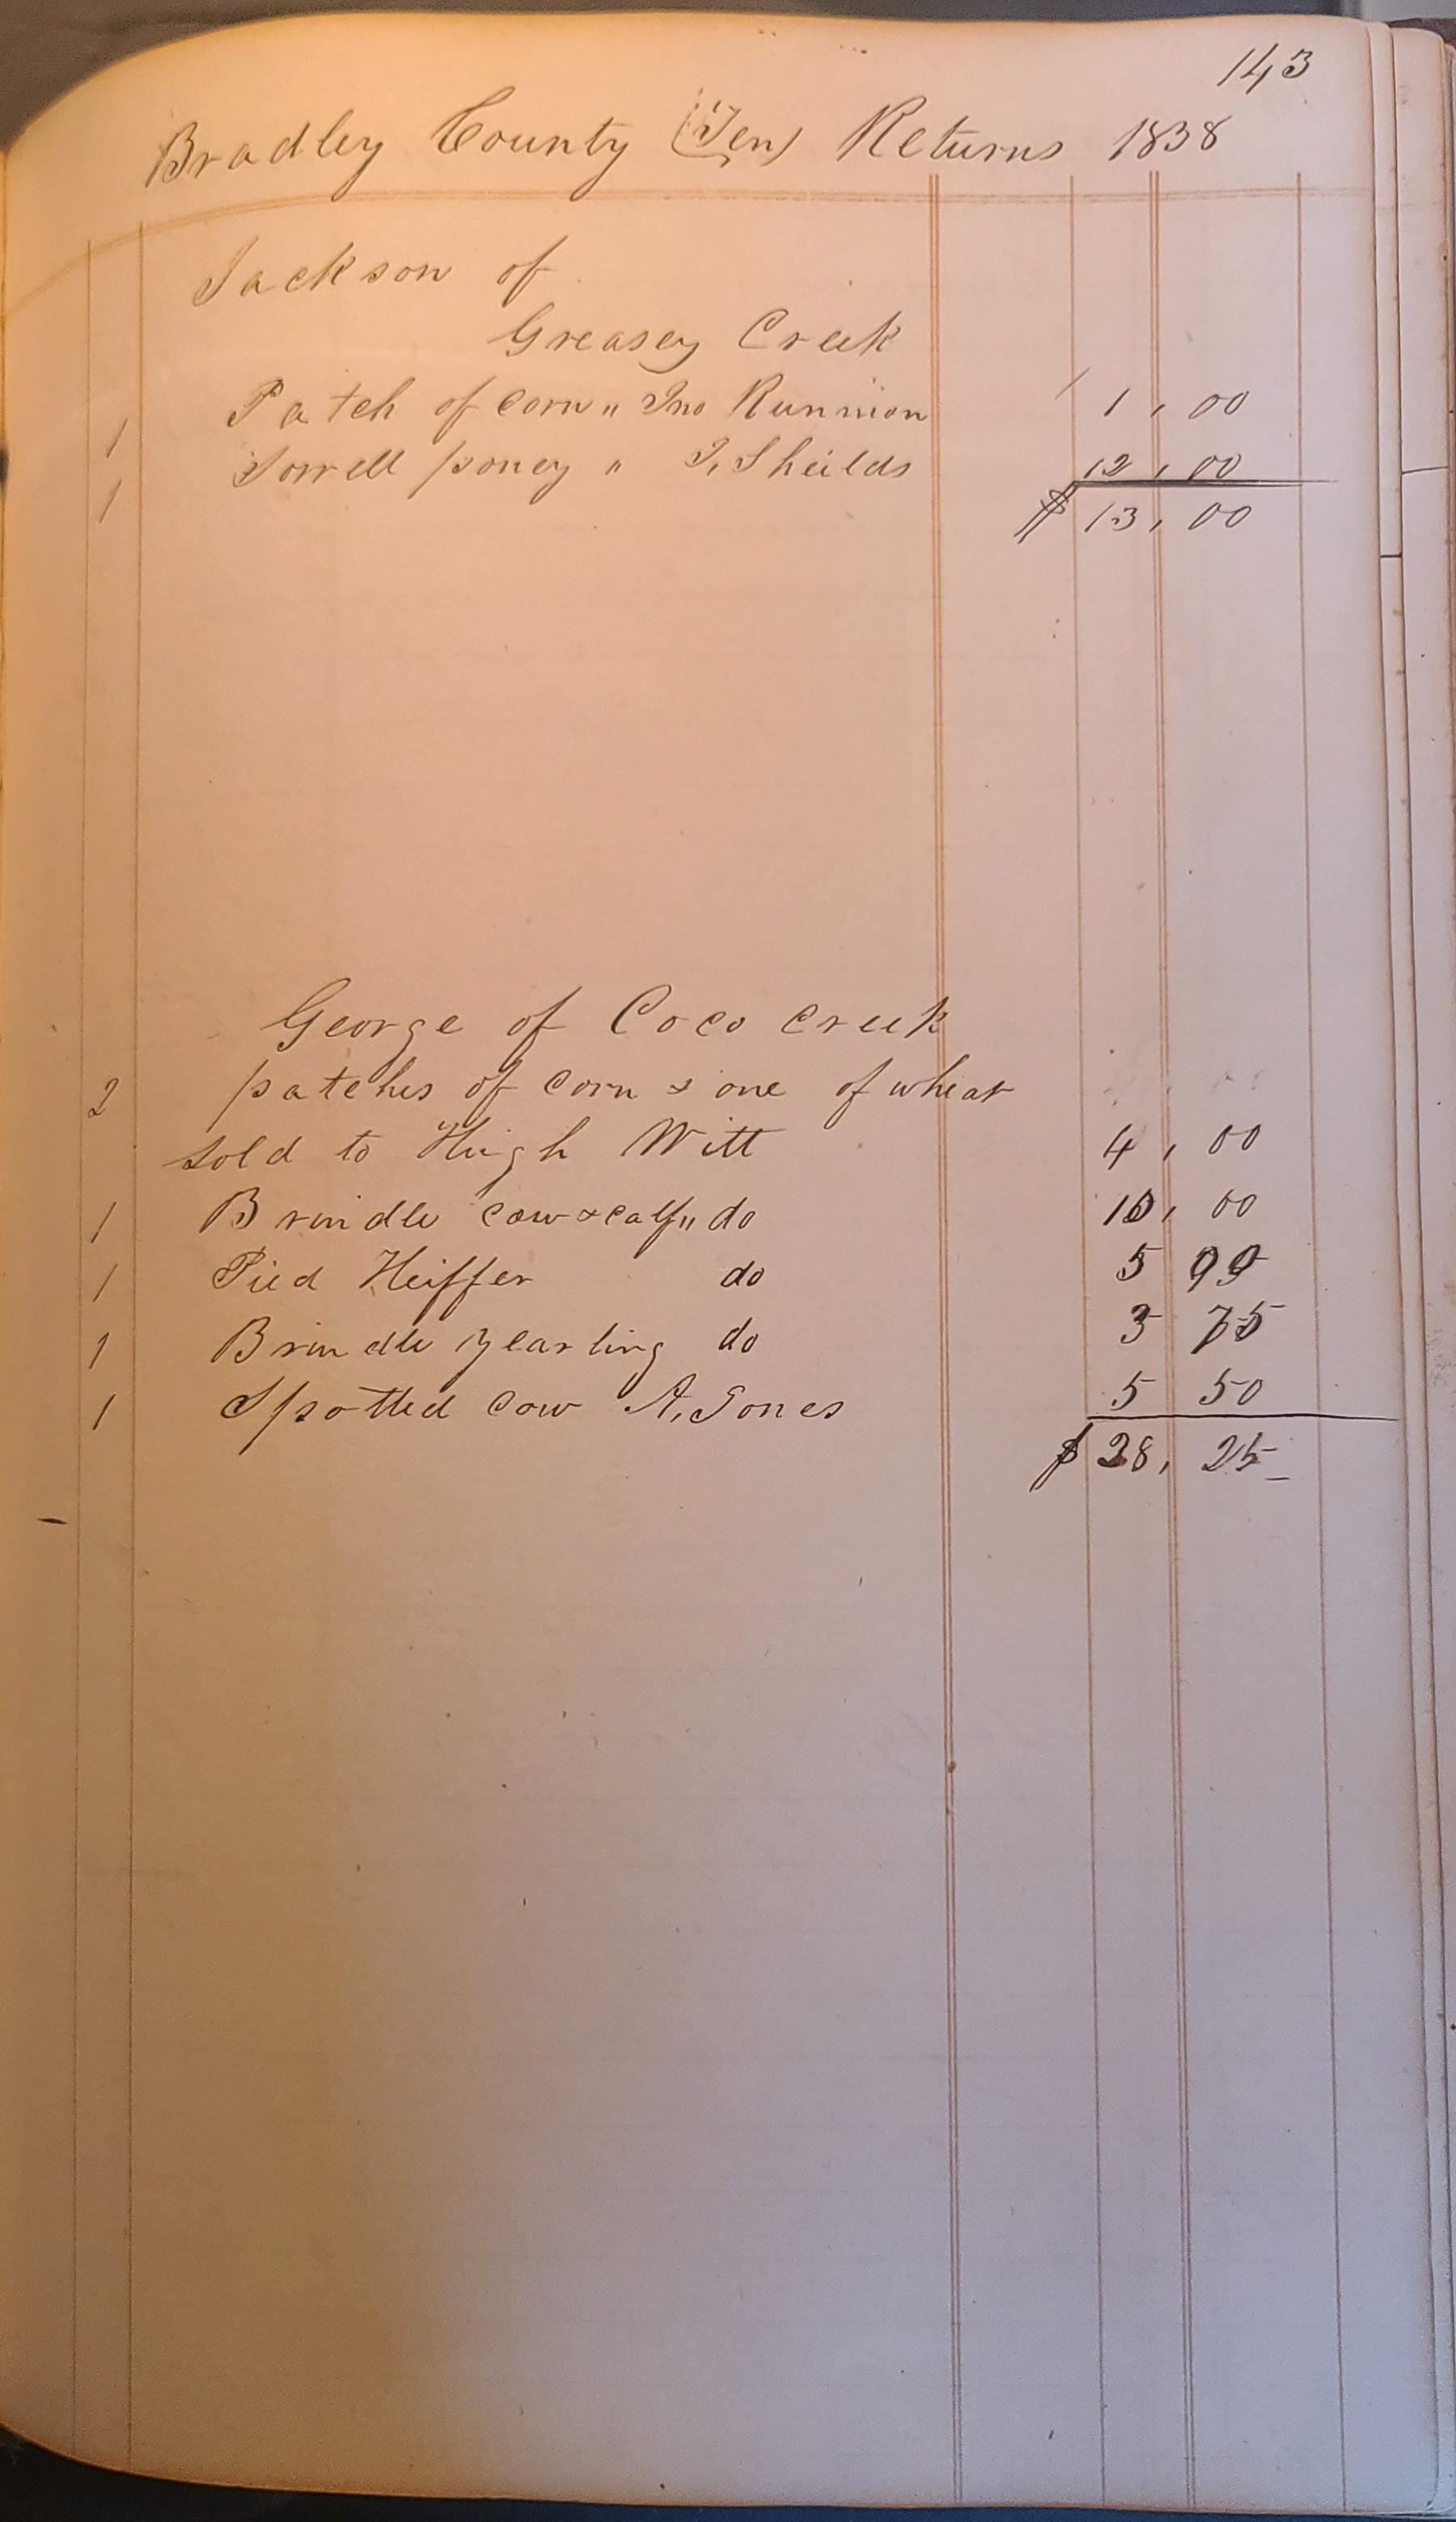 143
Bradley County (Ten) Returns 1838
Jackson of
Greasey Creek
1 Patch of corn " Jno Runnion 1, 00
1 Sorrell poney " J, Sheilds 12, 00
$ 13, 00
George of Coco creek
2 patches of corn & one of wheat
sold to Hugh Witt 4, 00
1 Brindle cow & calf " do 10, 00
1 Pied Heiffer do 5
1 Brindle yearling do 3 75
1 Spotted cow A, Jones 5 50
$ 28, 25